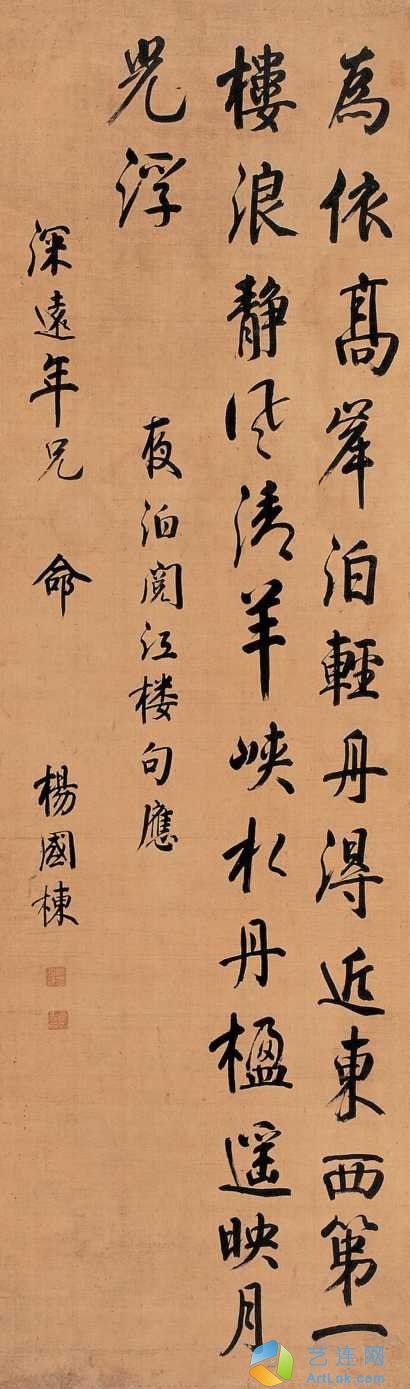 為依高岸泊輕舟得近東西第一
樓浪靜風清羊峽水丹楹遥映月
光浮
夜泊閱江楼句應
深遠年兄 命 楊國棟
艺连网
ArtLok.com